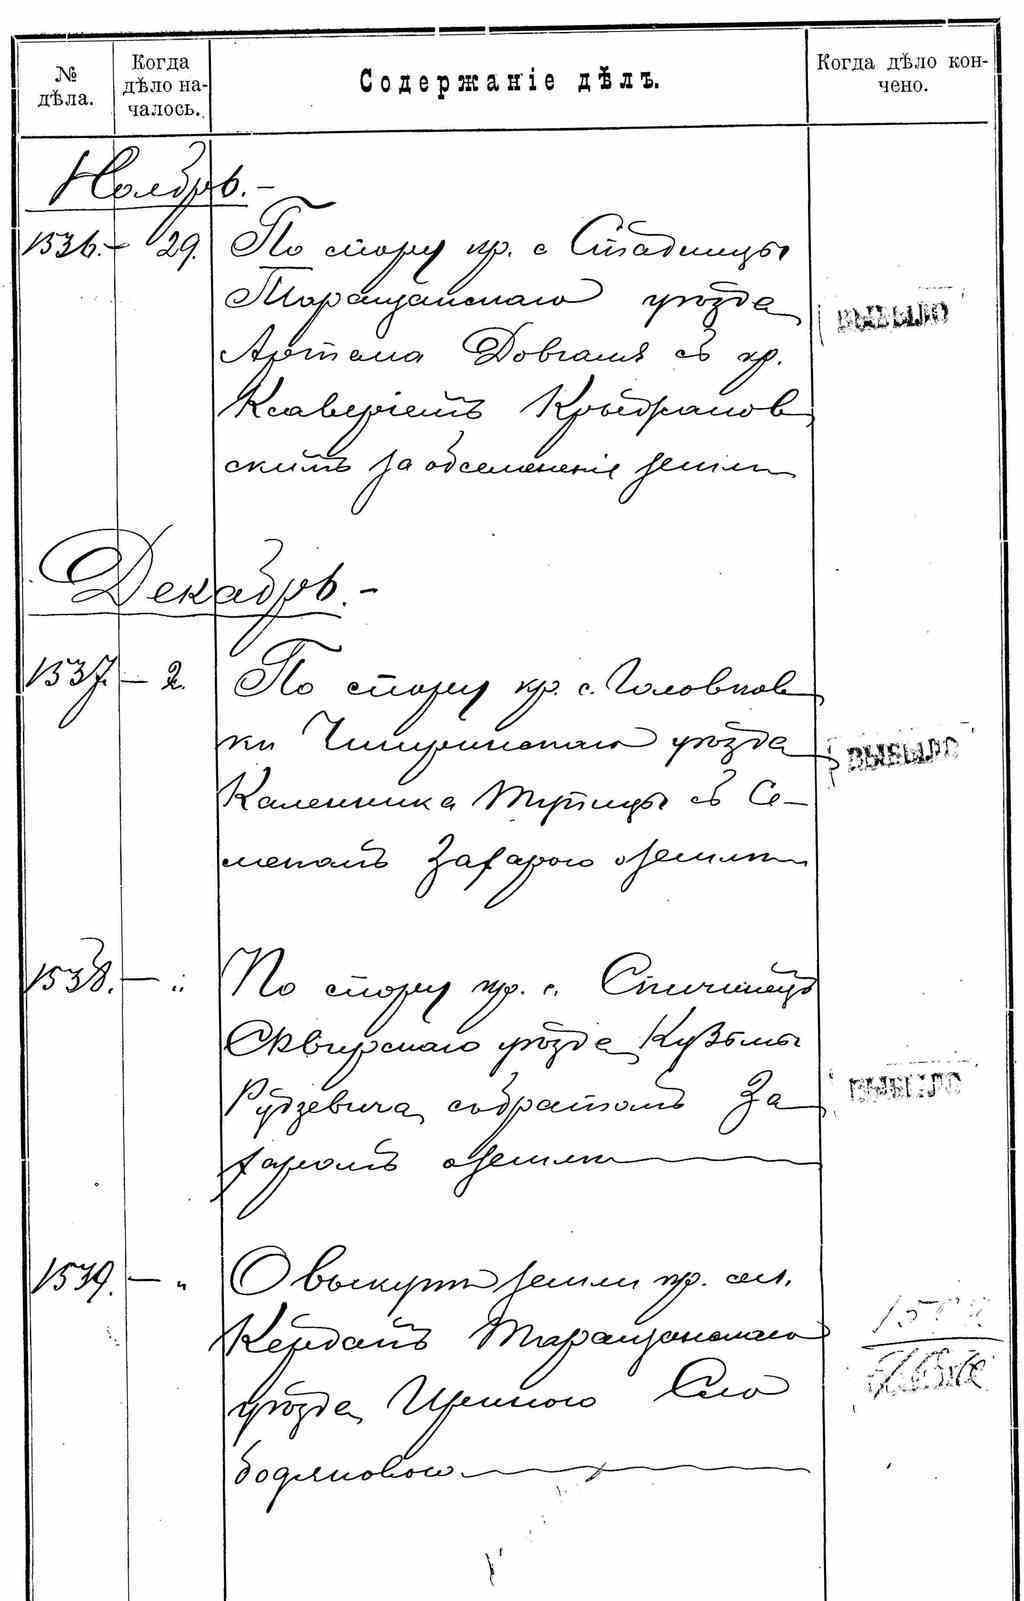 № дѣла.
Когда дѣло на-
чалось.
Содержаніе дѣлъ.
Когда дѣло кон-
чено.
Ноябрь.-
1536.- 29. По спору кр. с Стадницы
Таращанскаго уѣзда
Артема Довгаля съ кр.
Ксаверіемъ
скимъ за обсемененіе земли
ВЫБЫЛО
Декабрь.-
1537. - 2. По спору кр. с. Головков
ки Чигиринскаго уѣзда
Каленника Тупицы съ Се-
меномъ Захарою о земли
ВЫБЫЛО
1538. - " По спору кр. с. Спичинецъ
Сквирскаго уѣзда Кузьмы
Рудзевича съ братомъ За
харомъ о земли
ВЫБЫЛО
1539. - " О выкупѣ земли кр. сел.
Кердамъ Таращанскаго
уѣзда Ириною Сло
бодяновою